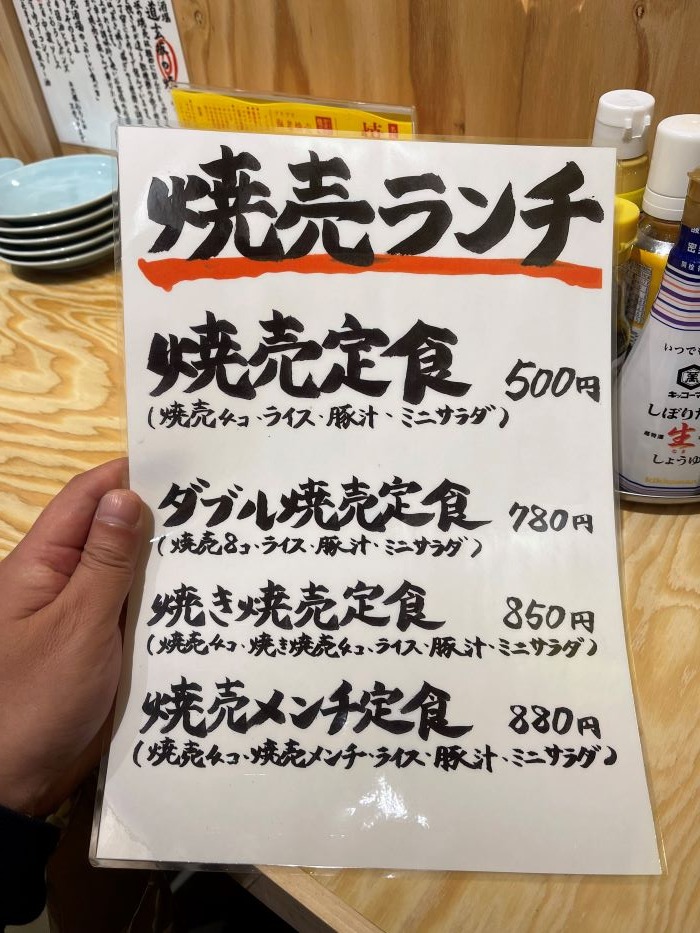 焼売ランチ
焼売定食 500円
(焼売4コ・ライス・豚汁・ミニサラダ)
ダブル焼売定食 780円
(焼売8コ・ライス・豚汁・ミニサラダ)
焼き焼売定食 850円
(焼売4コ・焼き焼売4コ・ライス・豚汁・ミニサラダ)
焼売メンチ定食 880円
(焼売4コ・焼売メンチ・ライス・豚汁・ミニサラダ)
いつでも
キッコーマン
しぼりた
生
しょうゆ